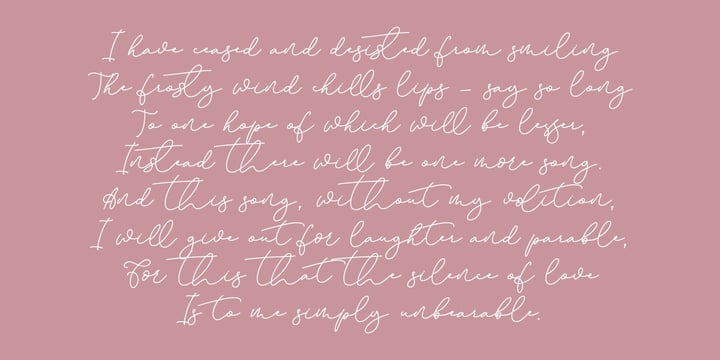 I have ceased and desisted from smiling
The frosty wind chills lips - say so long
To one hope of which will be lesser,
Instead there will be one more song.
And this song, without my volition,
I will give out for laughter and parable,
For this that the silence of love
Is to me simply unbearable.